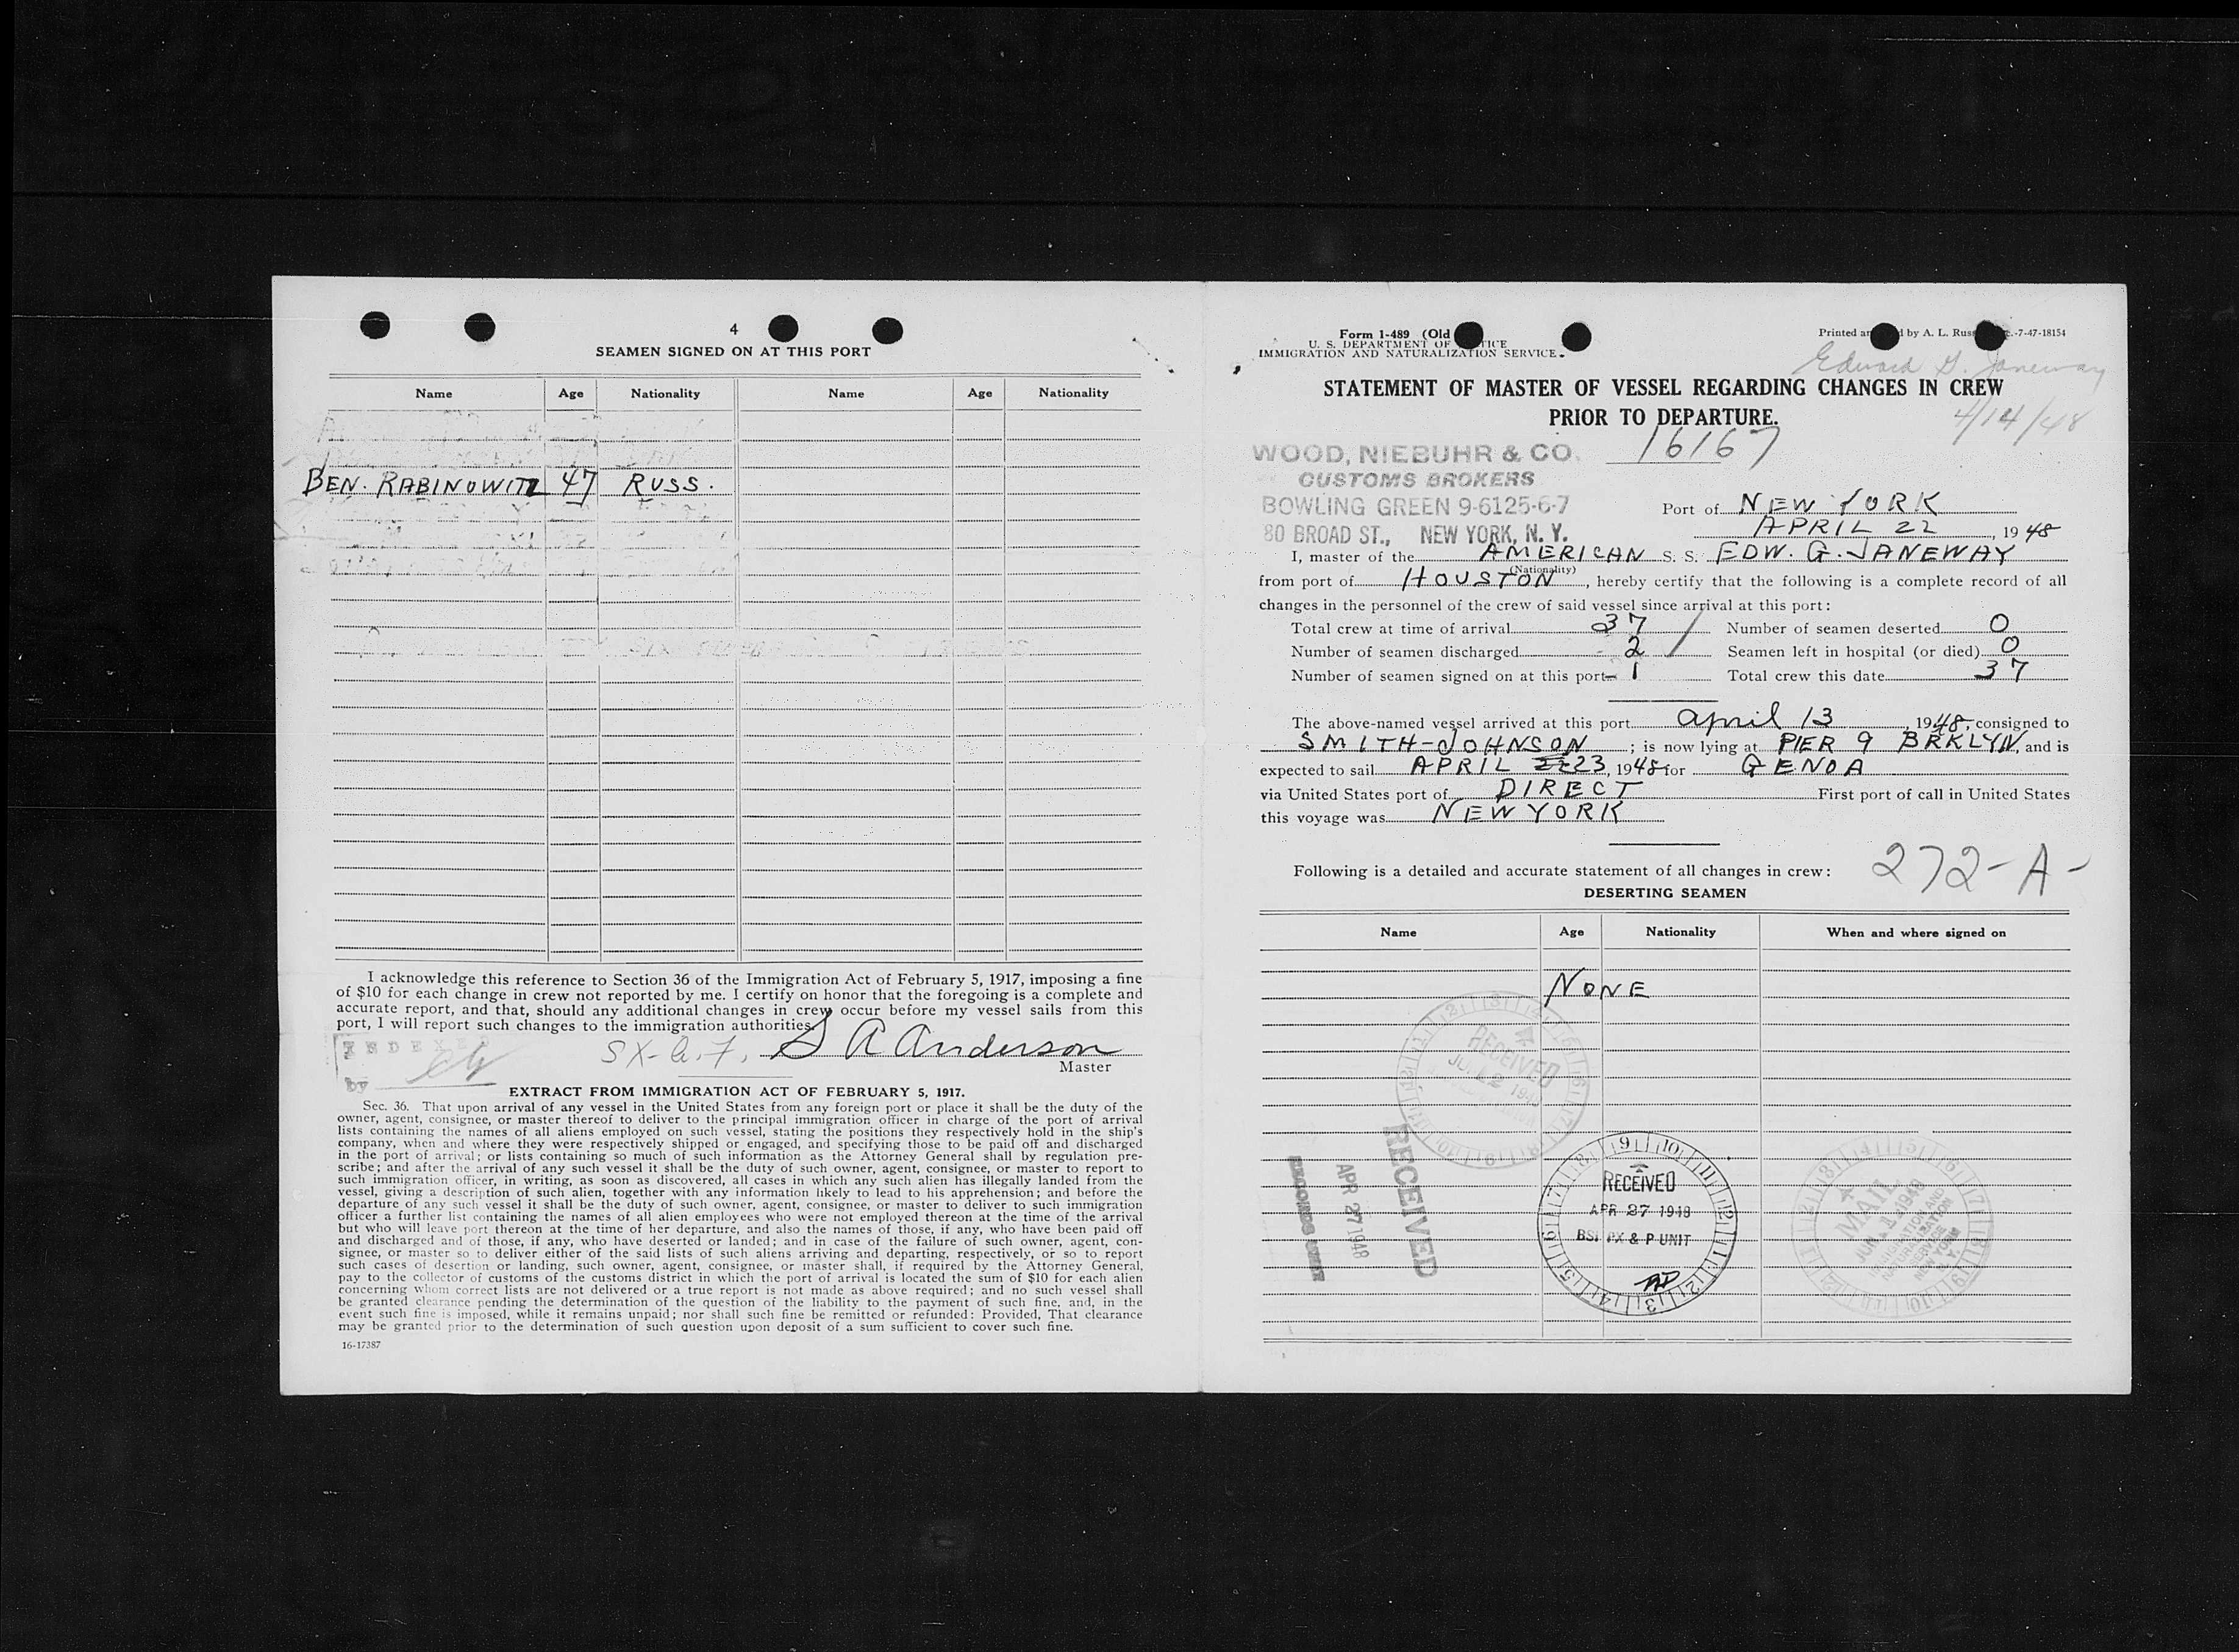 4
SEAMEN SIGNED ON AT THIS PORT
Name Age Nationality Name Age Nationality
BEN. RABINOWITZ 47 RUSS.
I acknowledge this reference to Section 36 of the Immigration Act of February 5, 1917, imposing a fine
of $10 for each change in crew not reported by me. I certify on honor that the foregoing is a complete and
accurate report, and that, should any additional changes in crew occur before my vessel sails from this
port, I will report such changes to the immigration authorities.
INDEXED
by
S A Anderson
Master
EXTRACT FROM IMMIGRATION ACT OF FEBRUARY 5, 1917.
Sec. 36. That upon arrival of any vessel in the United States from any foreign port or place it shall be the duty of the
owner, agent, consignee, or master thereof to deliver to the principal immigration officer in charge of the port of arrival
lists containing the names of all aliens employed on such vessel, stating the positions they respectively hold in the ship's
company, when and where they were respectively shipped or engaged, and specifying those to be paid off and discharged
in the port of arrival; or lists containing so much of such information as the Attorney General shall by regulation pre-
scribe; and after the arrival of any such vessel it shall be the duty of such owner, agent, consignee, or master to report to
such immigration officer, in writing, as soon as discovered, all cases in which any such alien has illegally landed from the
vessel, giving a description of such alien, together with any information likely to lead to his apprehension; and before the
departure of any such vessel it shall be the duty of such owner, agent, consignee, or master to deliver to such immigration
officer a further list containing the names of all alien employees who were not employed thereon at the time of the arrival
but who will leave port thereon at the time of her departure, and also the names of those, if any, who have been paid off
and discharged and of those, if any, who have deserted or landed; and in case of the failure of such owner, agent, con-
signee, or master so to deliver either of the said lists of such aliens arriving and departing, respectively, or so to report
such cases of desertion or landing, such owner, agent, consignee, or master shall, if required by the Attorney General,
pay to the collector of customs of the customs district in which the port of arrival is located the sum of $10 for each alien
concerning whom correct lists are not delivered or a true report is not made as above required; and no such vessel shall
be granted clearance pending the determination of the question of the liability to the payment of such fine, and, in the
event such fine is imposed, while it remains unpaid; nor shall such fine be remitted or refunded: Provided, That clearance
may be granted prior to the determination of such question upon deposit of a sum sufficient to cover such fine.
16-17387
Form 1-489 (Old
U. S. DEPARTMENT OF
IMMIGRATION AND NATURALIZATION SERVICE.
Printed by A. L. Russ -7-47-18154
Edward G. Janeway
STATEMENT OF MASTER OF VESSEL REGARDING CHANGES IN CREW
PRIOR TO DEPARTURE.
4/14/48
16167
WOOD, NIEBUHR & CO.
CUSTOMS BROKERS
BOWLING GREEN 9-6125-6-7
80 BROAD ST., NEW YORK, N. Y.
Port of NEW YORK
APRIL 22, 1948
I, master of the AMERICAN S. S. EDW. G. JANEWAY
(Nationality)
from port of HOUSTON, hereby certify that the following is a complete record of all
changes in the personnel of the crew of said vessel since arrival at this port:
Total crew at time of arrival 37 Number of seamen deserted 0
Number of seamen discharged 2 Seamen left in hospital (or died) 0
Number of seamen signed on at this port 1 Total crew this date 37
The above-named vessel arrived at this port April 13, 1948, consigned to
SMITH-JOHNSON; is now lying at PIER 9 BRKLYN, and is
expected to sail APRIL 23, 1948 for GENOA
via United States port of DIRECT First port of call in United States
this voyage was NEW YORK
Following is a detailed and accurate statement of all changes in crew:
272-A-
DESERTING SEAMEN
Name Age Nationality When and where signed on
NONE
RECEIVED
RECEIVED
APR 27 1948
RECEIVED
APR 27 1948
BSI PX & P UNIT
MAIL
IMMIGRATION AND
NATURALIZATION
SERVICE
NEW YORK
N. Y.